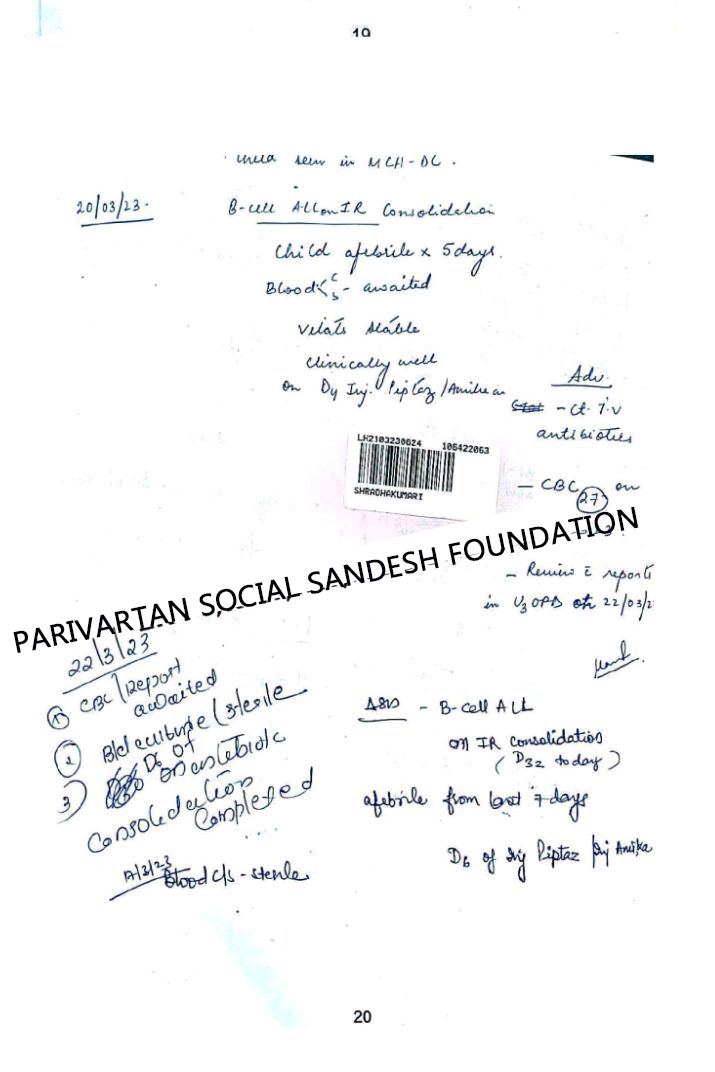 19
seen in MCH-DC.
20/03/23.
B-cell ALL on IR Consolidation
Child afebrile x 5 days.
Blood C/S - awaited
Vitals stable
Clinically well
on D4 Inj. Piptaz /
Adv.
- Ct. i.v
antibiotics
LH2103230624 106422063
SHRADHAKUMARI
- CBC on
27
PARIVARTAN SOCIAL SANDESH FOUNDATION
- Review c̄ reports
in U3 OPD on 22/03/2
22/3/23
① CBC / Report
awaited
② Bld culture / sterile
3) D6 of
on antebiotic
Consoledation
Completed
17/3/23
Blood C/S - sterile
- B-cell ALL
on IR consolidation
(D32 today)
afebrile from last 7 days
D6 of Inj Piptaz Inj Amika
20